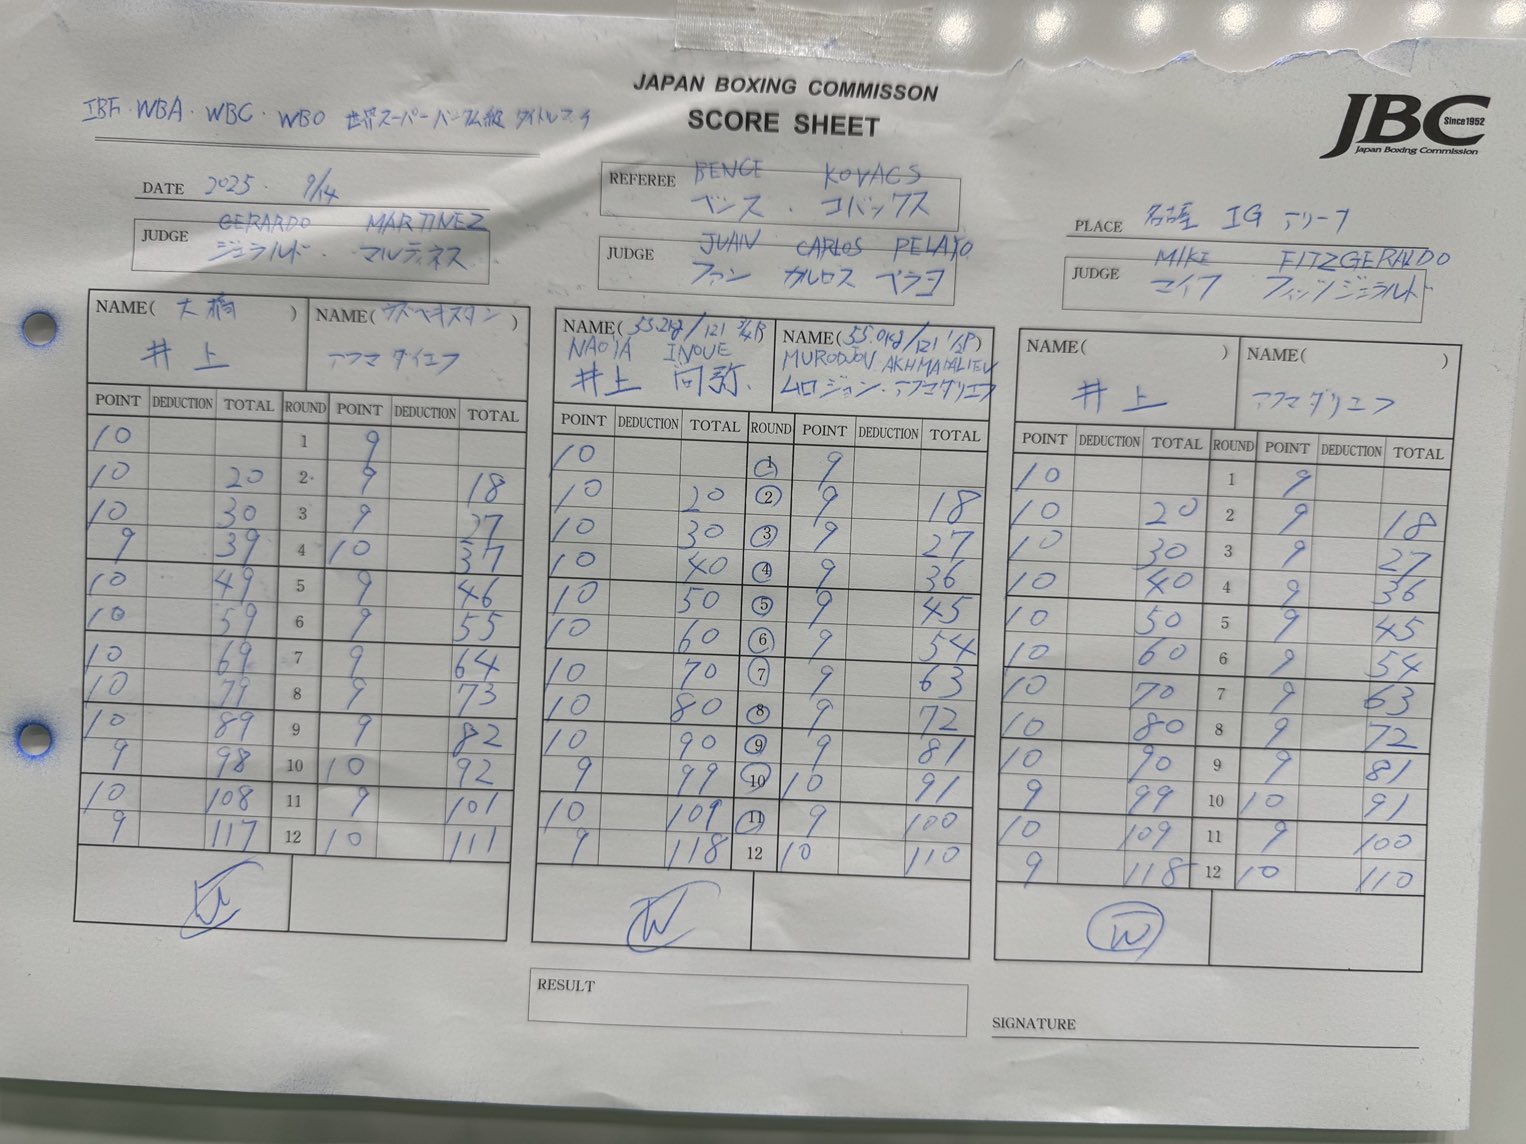 JAPAN BOXING COMMISSON
SCORE SHEET
JBC Since1952
Japan Boxing Commission
IBF・WBA・WBC・WBO 世界スーパーバンタム級 タイトルマッチ
DATE 2025. 9/14
REFEREE BENCE KOVACS
ベンス・コバックス
PLACE 名古屋 IGアリーナ
JUDGE GERARDO MARTINEZ
ジェラルド・マルティネス
JUDGE JUAN CARLOS PELAYO
ファン カルロス ペラヨ
JUDGE MIKE FITZGERALDO
マイク フィッツジェラルド
NAME( 大橋 ) NAME( ウズベキスタン )
井上 アフマダリエフ
POINT DEDUCTION TOTAL ROUND POINT DEDUCTION TOTAL
10 1 9
10 20 2 9 18
10 30 3 9 27
9 39 4 10 37
10 49 5 9 46
10 59 6 9 55
10 69 7 9 64
10 79 8 9 73
10 89 9 9 82
9 98 10 10 92
10 108 11 9 101
9 117 12 10 111
W
NAME( 55.2kg/121 3/4P ) NAME( 55.0kg/121 1/4P )
NAOYA INOUE MURODJON AKHMADALIEV
井上 尚弥. ムロジョン・アフマダリエフ
POINT DEDUCTION TOTAL ROUND POINT DEDUCTION TOTAL
10 1 9
10 20 2 9 18
10 30 3 9 27
10 40 4 9 36
10 50 5 9 45
10 60 6 9 54
10 70 7 9 63
10 80 8 9 72
10 90 9 9 81
9 99 10 10 91
10 109 11 9 100
9 118 12 10 110
W
NAME( ) NAME( )
井上 アフマダリエフ
POINT DEDUCTION TOTAL ROUND POINT DEDUCTION TOTAL
10 1 9
10 20 2 9 18
10 30 3 9 27
10 40 4 9 36
10 50 5 9 45
10 60 6 9 54
10 70 7 9 63
10 80 8 9 72
10 90 9 9 81
9 99 10 10 91
10 109 11 9 100
9 118 12 10 110
W
RESULT
SIGNATURE